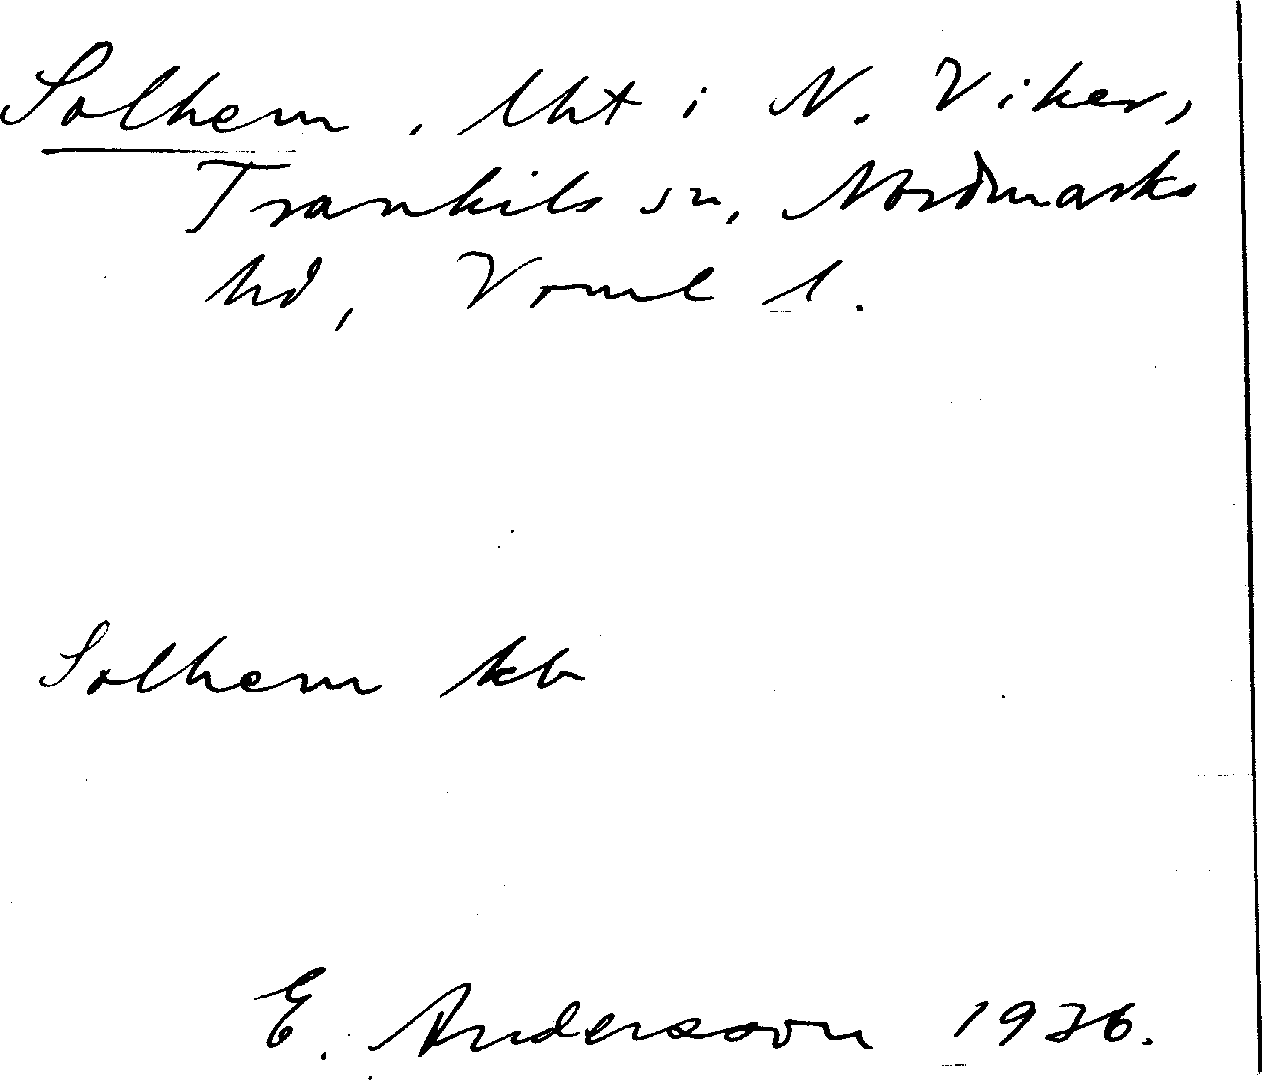 Solhem, lht i N. Viker,
Trankils sn, Nordmarks
hd, Vrml l.
Solhem kb
E. Andersson 1936.